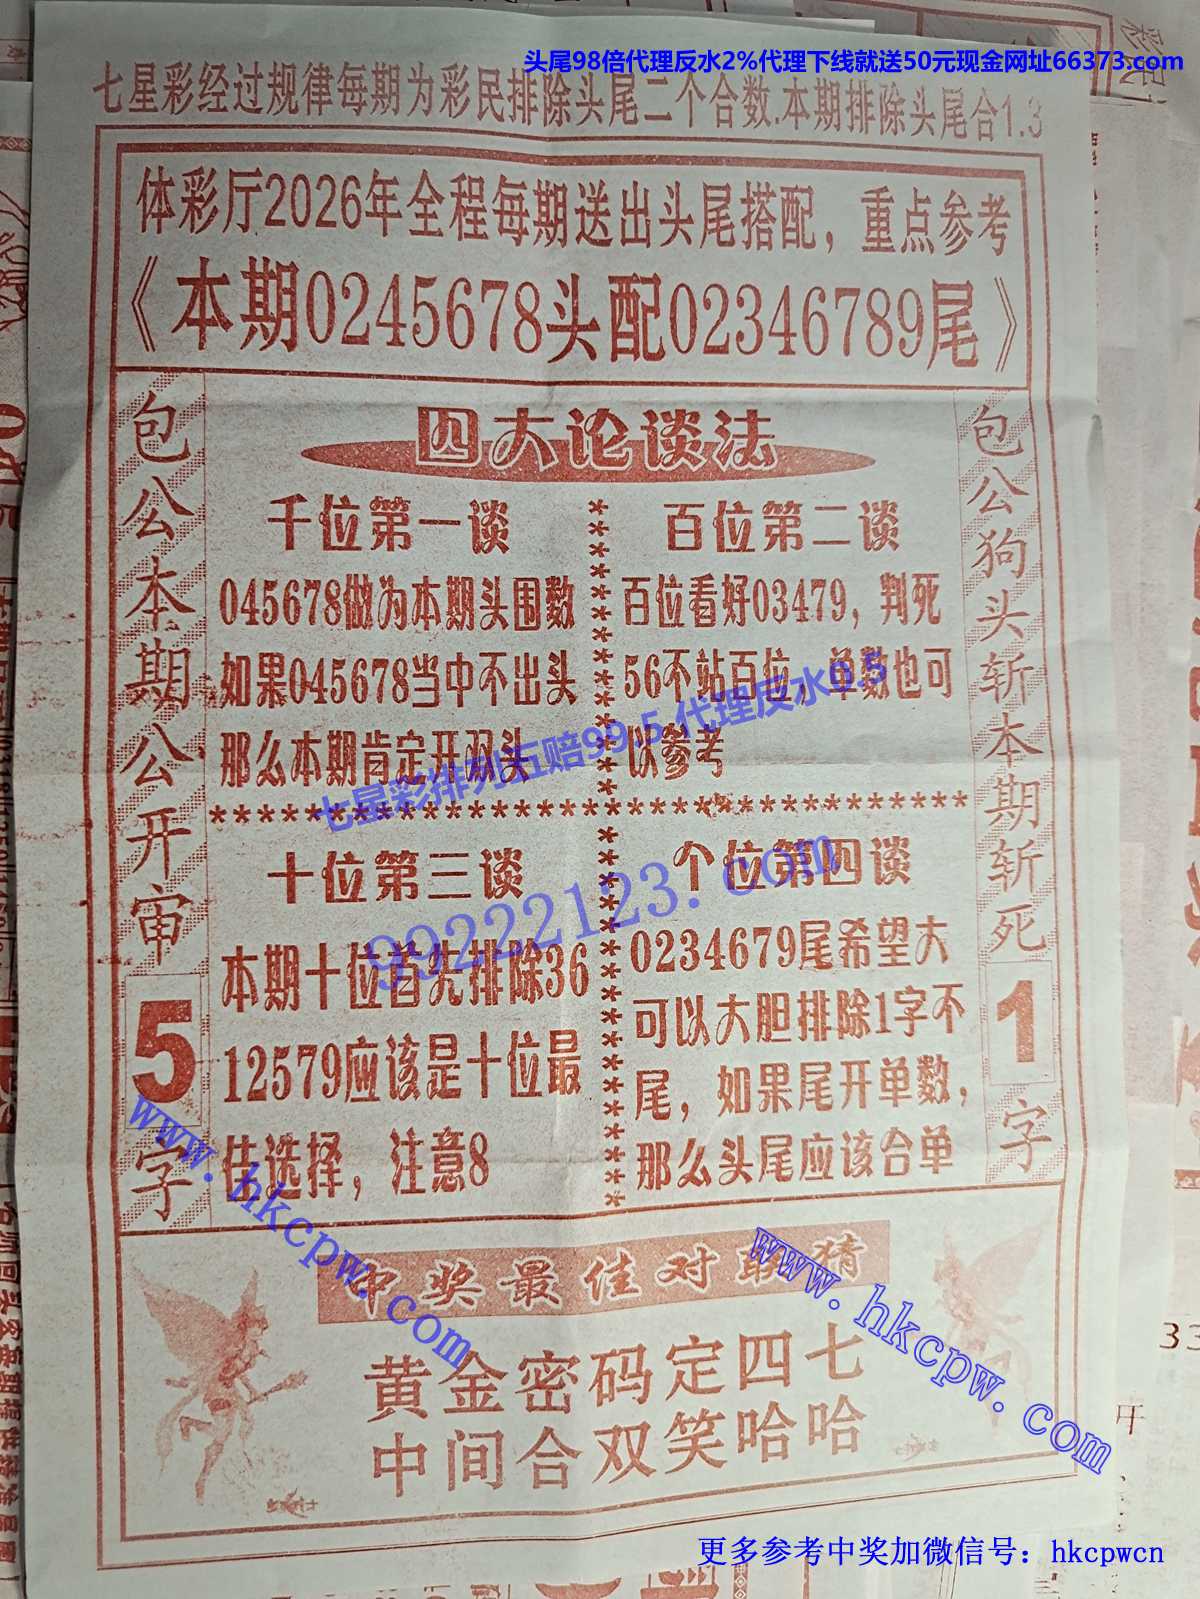 头尾98倍代理反水2%代理下线就送50元现金网址66373.com
七星彩经过规律每期为彩民排除头尾二个合数.本期排除头尾合1.3
体彩厅2026年全程每期送出头尾搭配，重点参考
《本期0245678头配02346789尾》
包公本期公开审
5
字
四大论谈法
千位第一谈
045678做为本期头围数
如果045678当中不出头
那么本期肯定开羽头
百位第二谈
百位看好03479，判死
56不站百位，单数也可
以参考
七星彩排列五赔99.5代理反水0.5
十位第三谈
本期十位首先排除36
12579应该是十位最
佳选择，注意8
99222123.com
个位第四谈
0234679尾希望大
可以大胆排除1字不
尾，如果尾开单数，
那么头尾应该合单
包公狗头斩本期斩死
1
字
www.hkcpw.com
www.hkcpw.com
中奖最佳对联猜
黄金密码定四七
中间合双笑哈哈
更多参考中奖加微信号：hkcpwcn